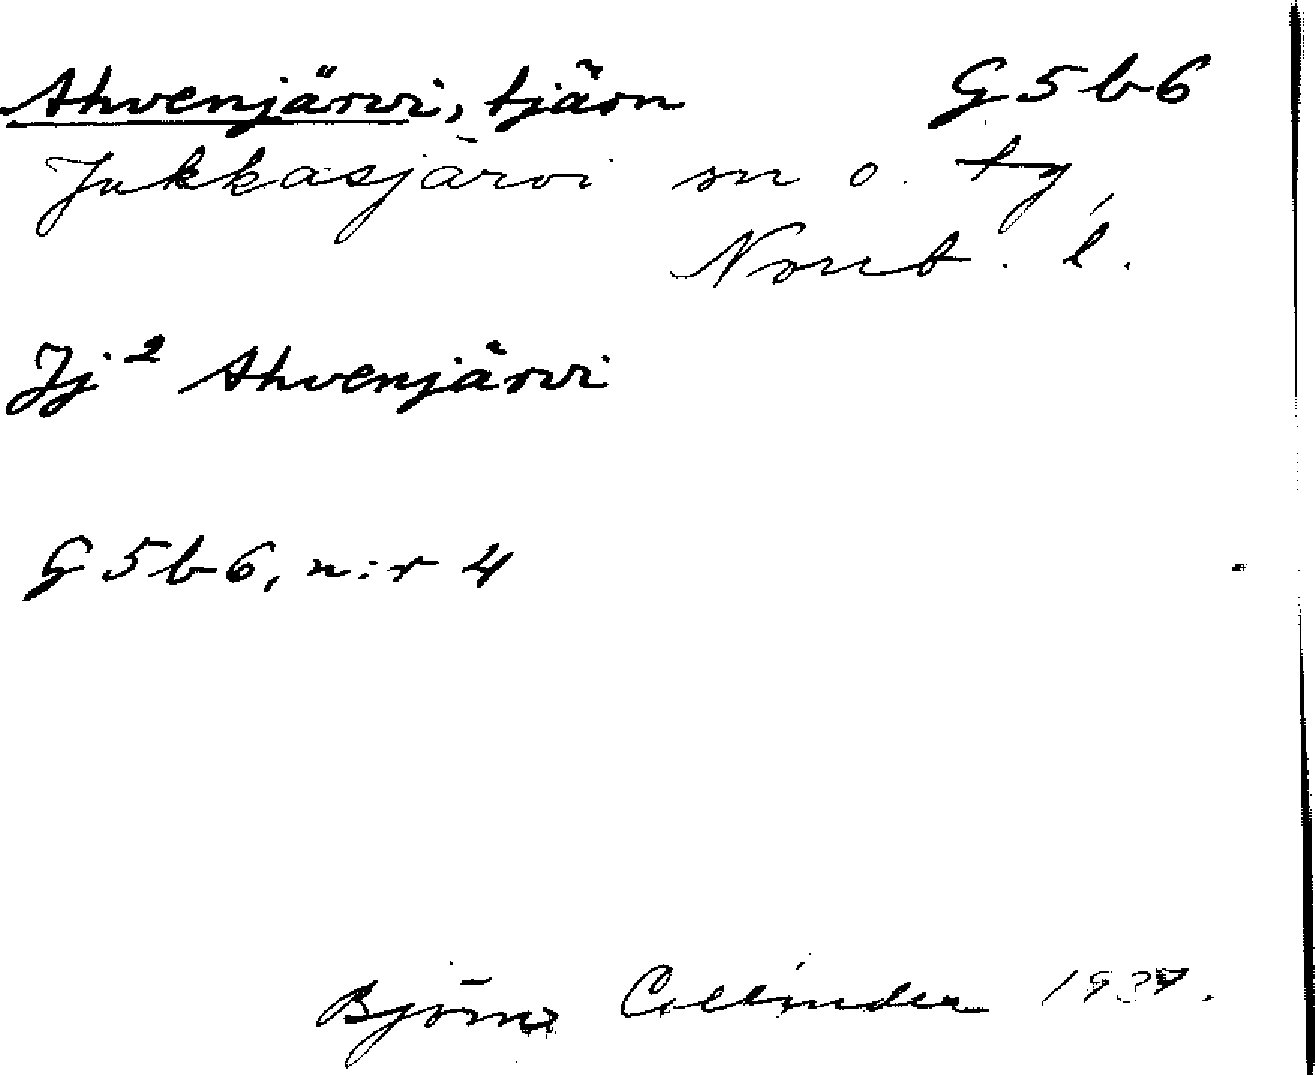 Ahvenjärvi, tjärn G 5 b 6
Jukkasjärvi sn o. tg,
Norrb. l.
Jj² Ahvenjärvi
G 5 b 6, n:r 4
Björn Collinder 1937.